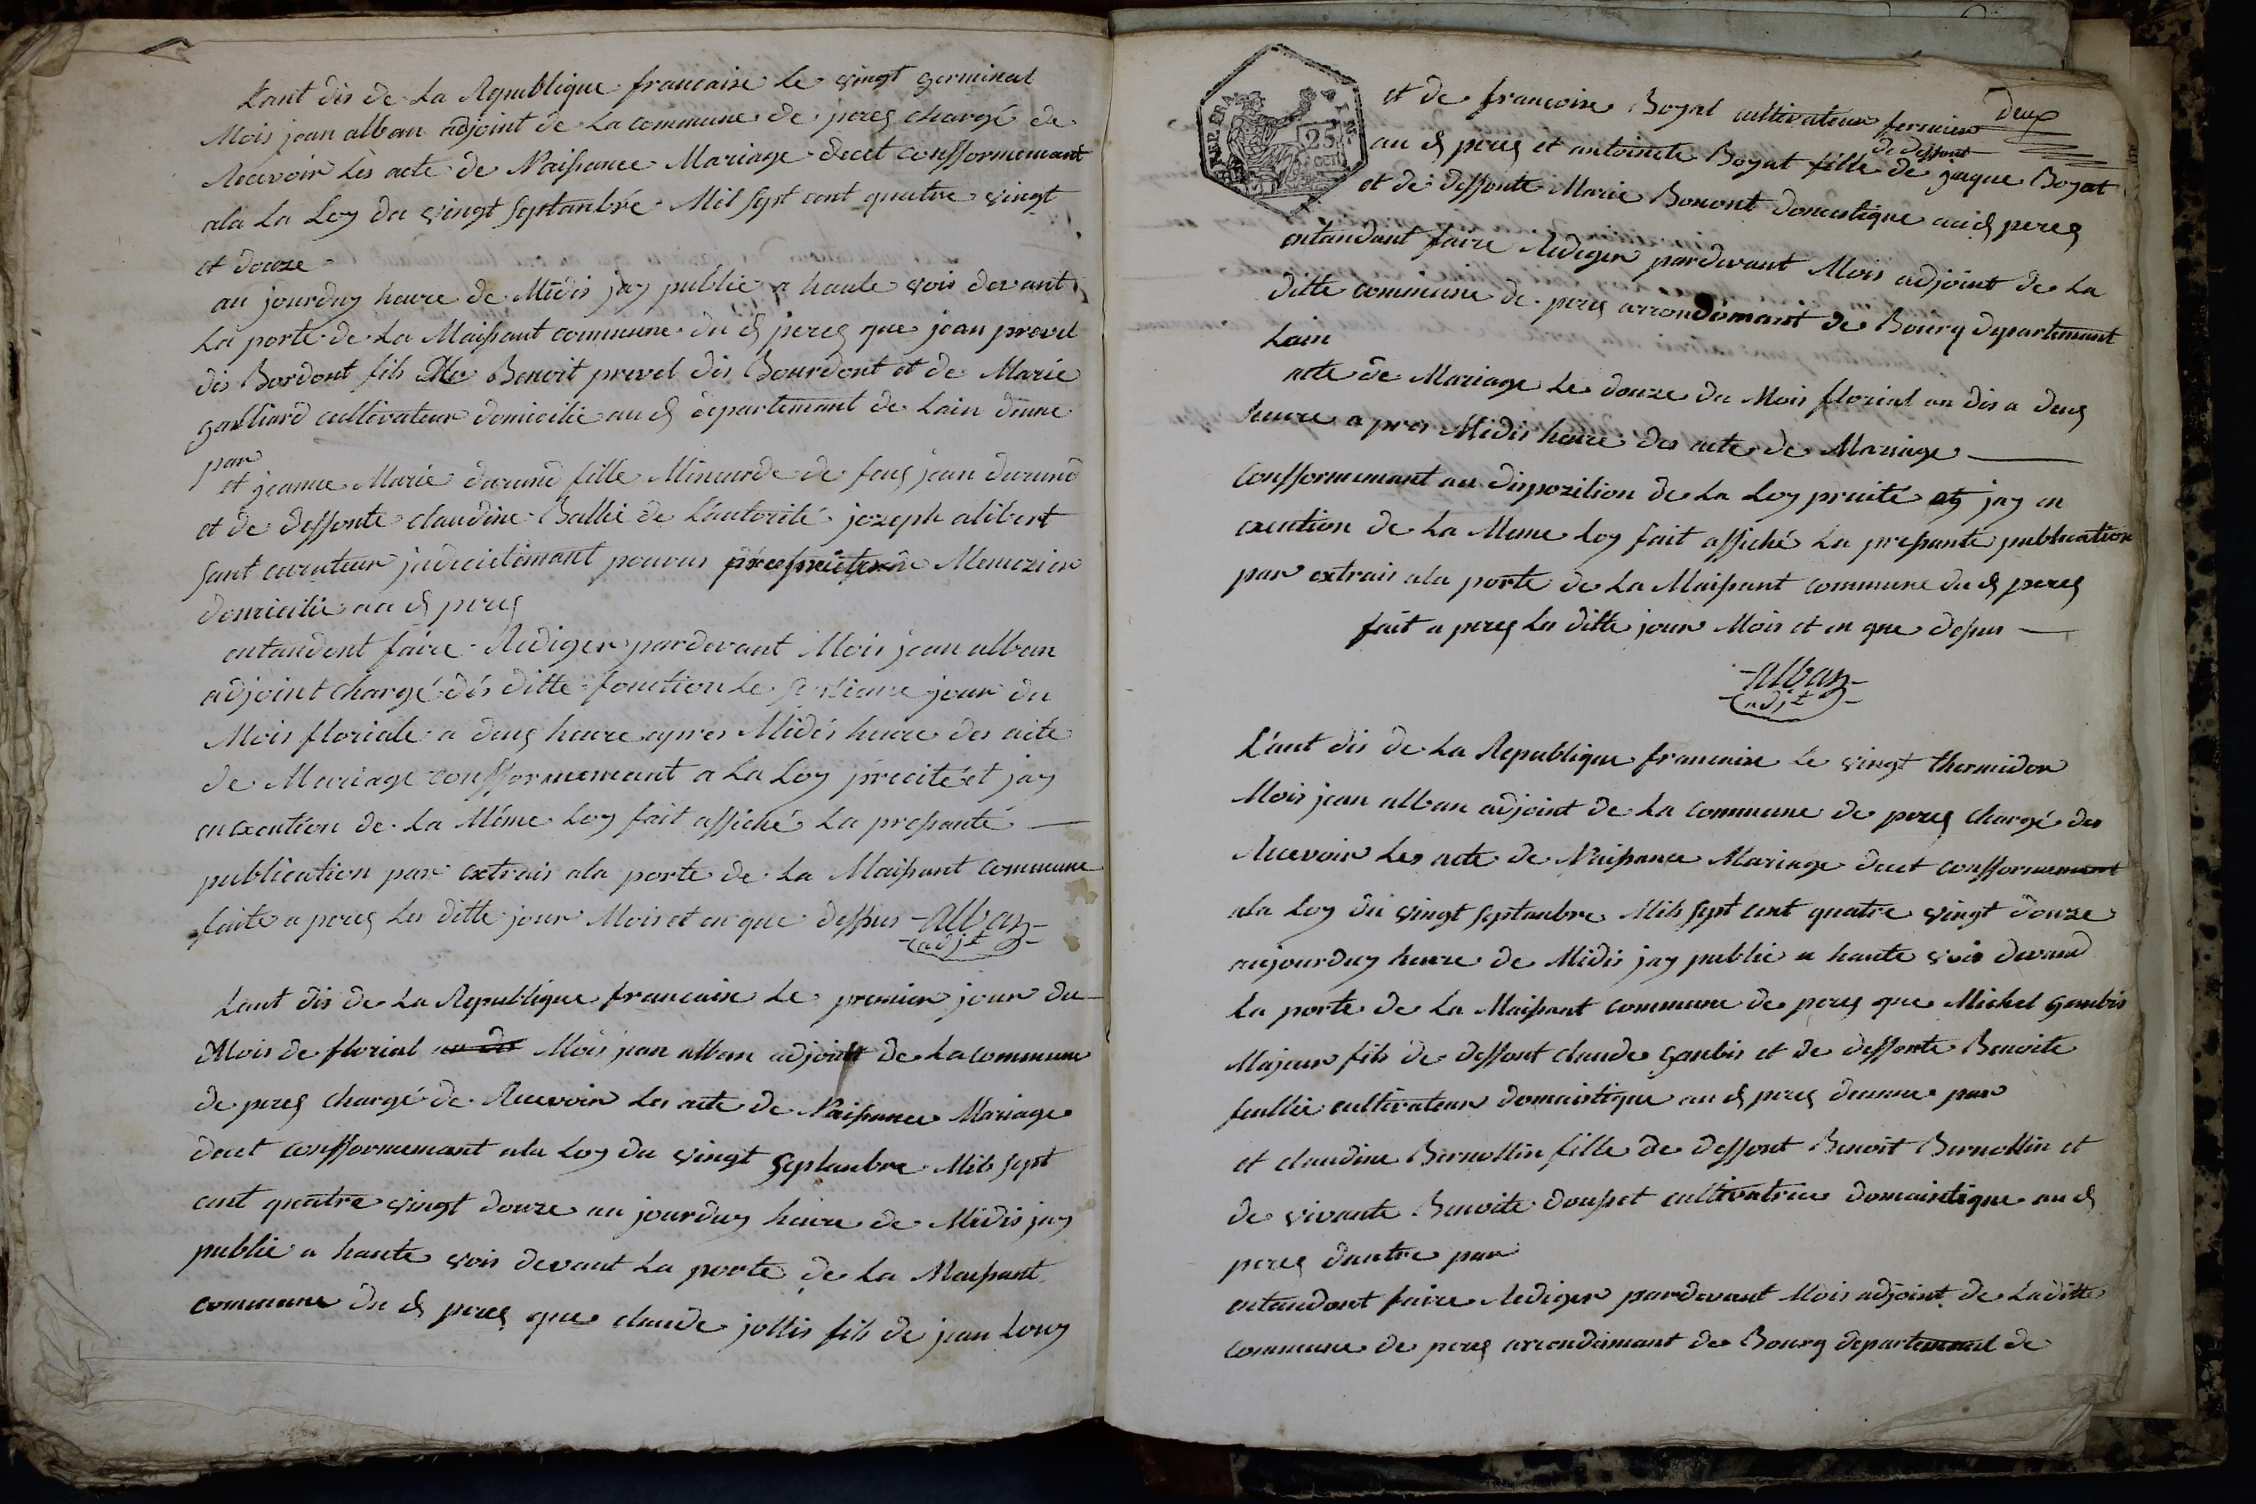 Lant dis de La Republique francaise Le vingt germinal
Mois jean alban adjoint de La commune de peres chargé de
Recevoir Les acte de Naissance Mariage decet conssormemant
ala La Loy du vingt septanbre Mil sept cent quatre vingt
et douze
au jourduy heure de Midis jay publie a haute vois devant
La porte de La Maissant commune du d peres que jean prevel
dis Bordont fils De Benoit prevel dis Bourdont et de Marie
galliard cultivateur domicilie au d departement de Lain dunne
par
et jeanne Marie durand fille Mineurde de feus jean durand
et de deffonte claudine Balli de Lautorité jozeph alibert
sant curateur judiciellemant pouvus Menuzier
domicilie au d peres
entandent faire Rediger pardevant Mois jean alban
adjoint chargé dés ditte fonction Le jour du
Mois floriale a deus heure apres Midis heure des acte
de Mariage conssormemant a La Loy précité et jay
en execution de La Méme Loy fait affiché La pressante
publication par extrais ala porte de La Maissant commune
faite a peres Les ditte jour Mois et en que dessus alban
adjt
Lant dis de La Republique francaise Le premier jour du
Mois de florial an dis Mois jean alban adjoint de La commune
de peres chargé de Recevoir Les acte de Naissance Mariage
decet conssormemant ala Loy du vingt septanbre Mils sept
cent quatre vingt douze au jourduy heure de Midis jay
publie a haute vois devant La porte de La Maissant
commune du d peres que claude jollis fils de jean Louy
REP. FRA
25
cen
deux
et de francoise Boyat cultivateur fermier
de deffont
au d peres et antoinete Boyat fille de jaque Boyat
et de deffonte Marie Bonont domestique au d peres
entandant faire Rediger pardevant Mois adjoint de La
ditte commune de peres arrondemant de Bourg departemant
Lain
acte de Mariage Le douze du Mois florial an dis a deus
heure apres Midis heure des acte de Mariage
Conssormemant au dispozition de La Loy precite et jay en
execution de La Meme Loy fait affiché La pressante publication
par extrais ala porte de La Maissant commune du d peres
fait a peres Les ditte jour Mois et en que desus
alban
adjt
L'ant dis de La Republique francaise Le vingt thermidor
Mois jean alban adjoint de La commune de peres chargé des
Recevoir Les acte de Naissance Mariage decet conssormemant
ala Loy du vingt septanbre Mils sept cent quatre vingt douze
aujourduy heure de Midis jay publie a haute vois devand
La porte de La Maissant commune de peres que Michel ganbis
Majeur fils de deffont claude ganbis et de deffonte Benoite
feullie cultivateur domaistique au d peres dunne par
et claudine Bernollin fille de deffont Benoit Bernollin et
de vivante Benoite dousset cultivatrice domaistique au d
peres dautre par
entandont faire Rediger pardevant Mois adjoint de La ditte
commune de peres arrondemant de Bourg departemant de